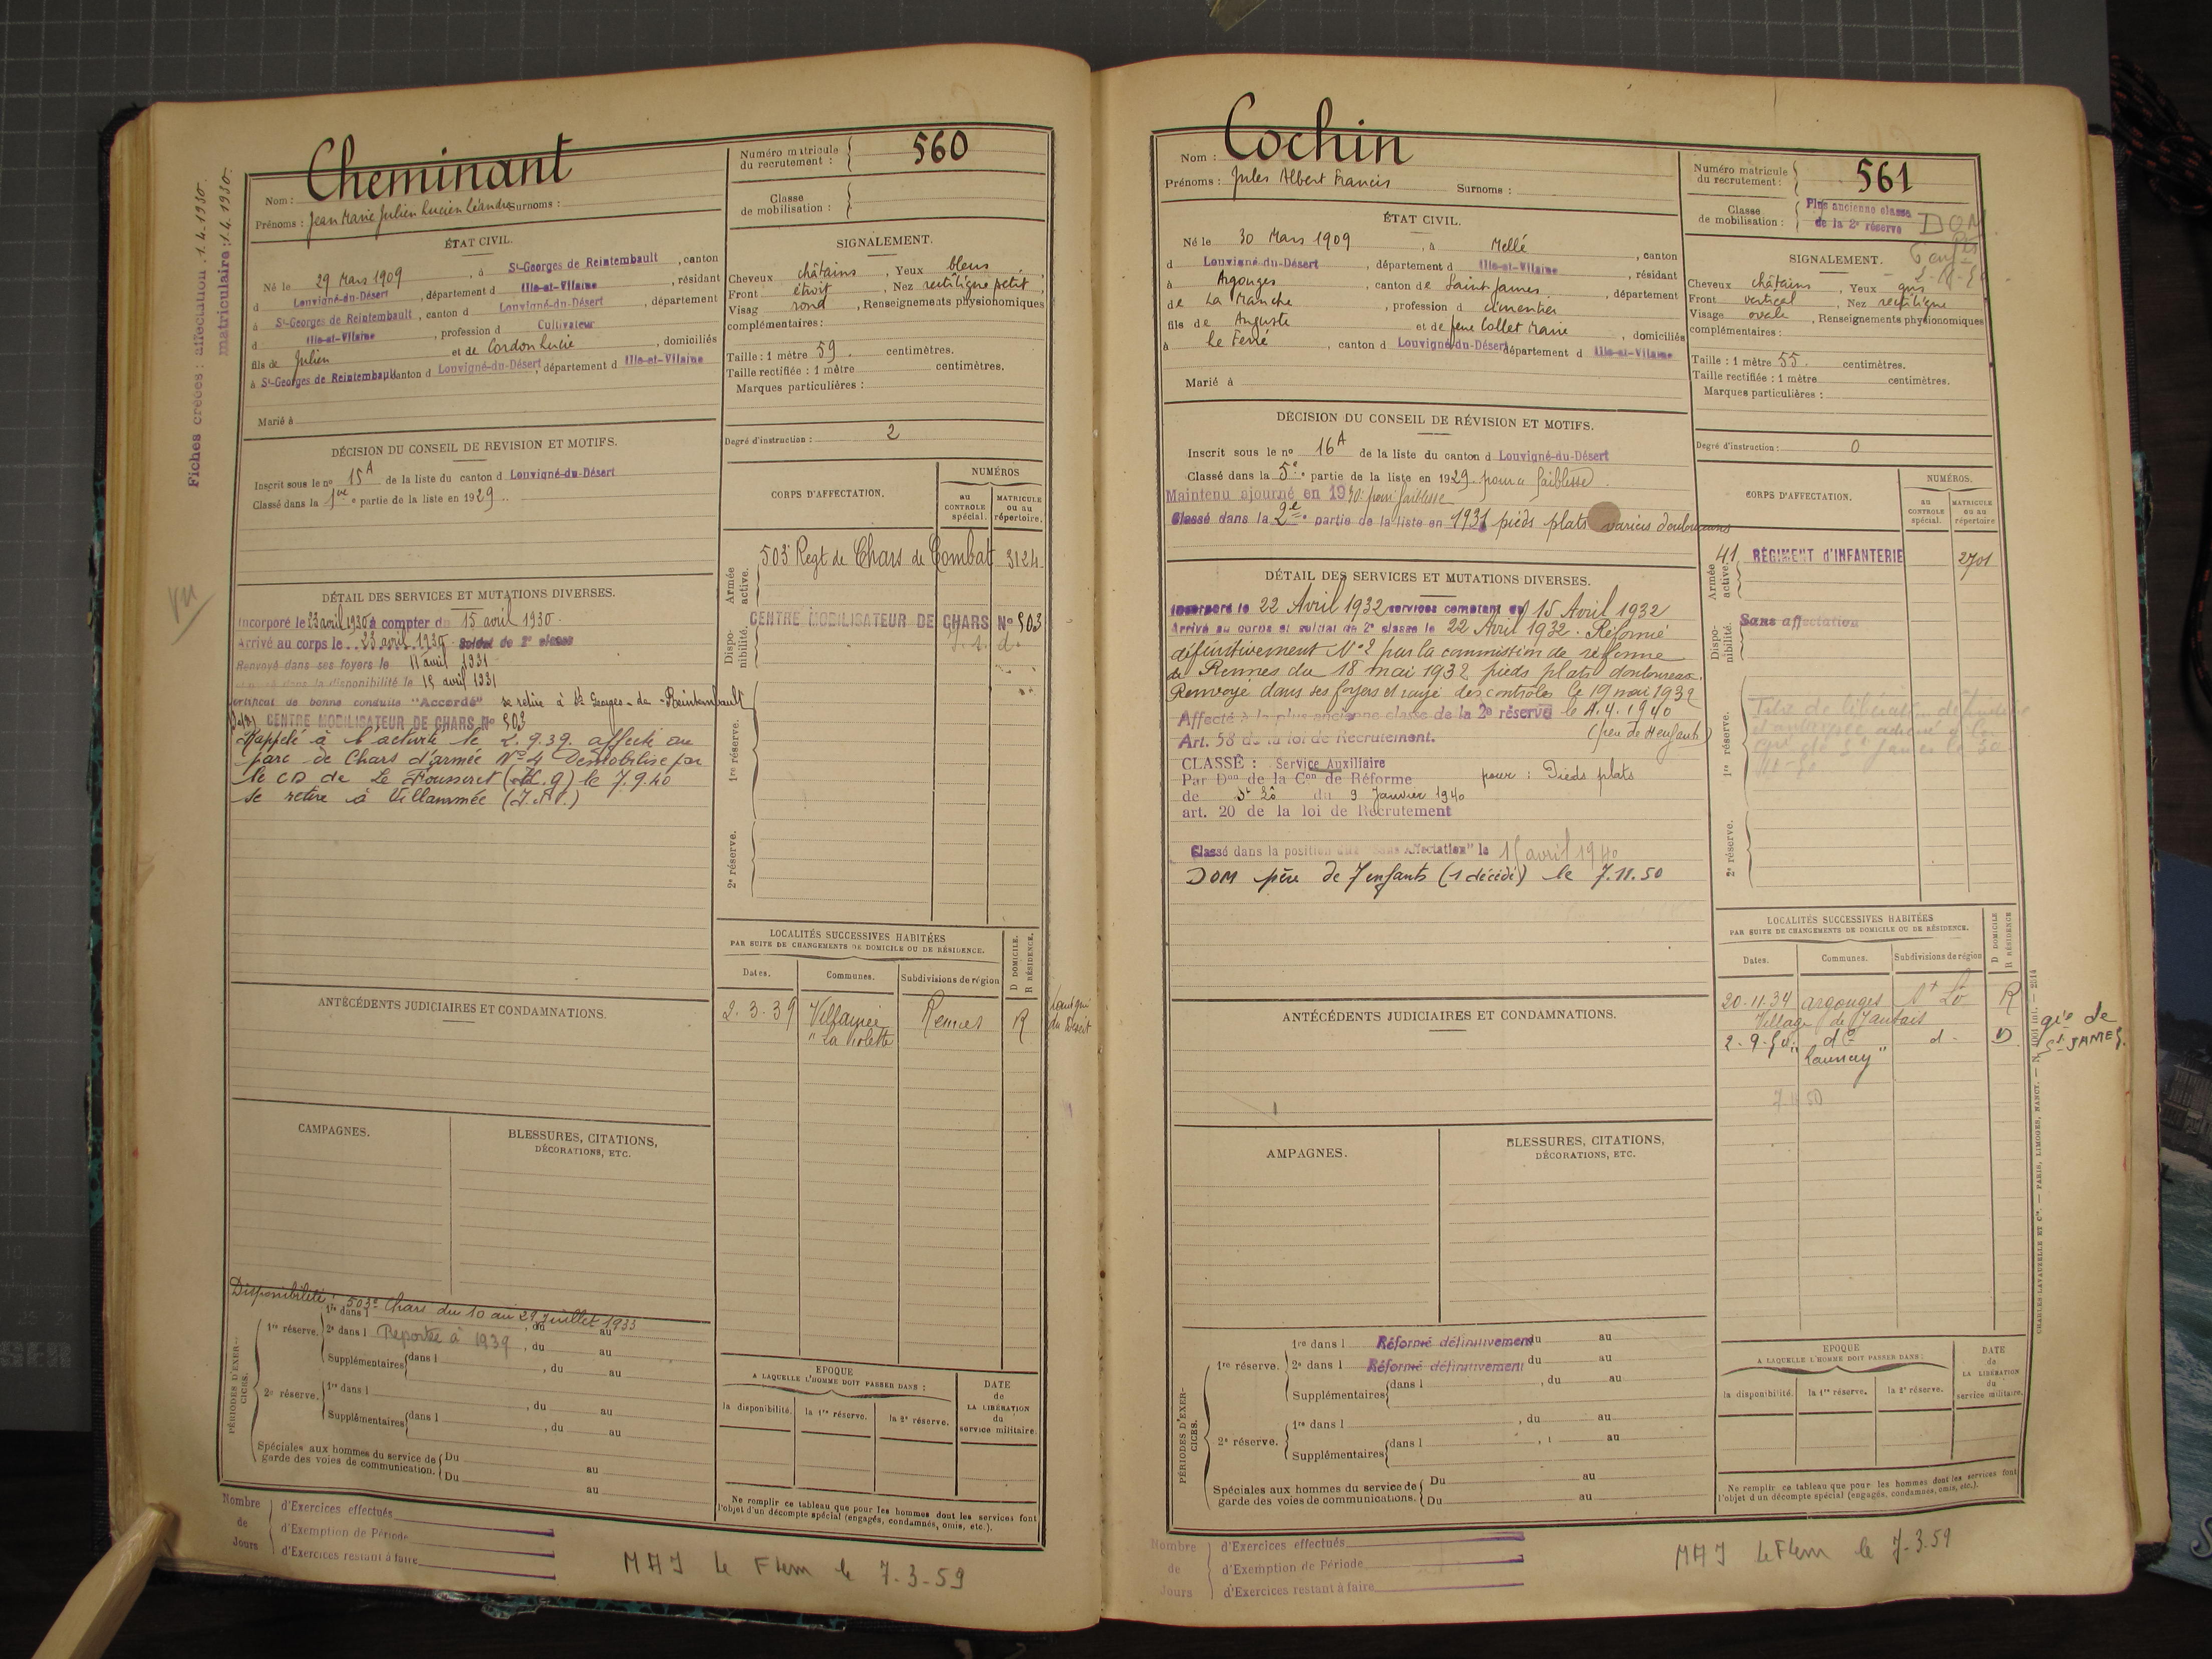 Fiches créées : affectation 1.4.1930.
matriculaire : 1.4.1930.
Nom : Cheminant
Prénoms : Jean Marie Julien Lucien Léandre Surnoms :
Numéro matricule du recrutement : 560
Classe de mobilisation :
ÉTAT CIVIL.
Né le 29 Mars 1909, à St-Georges de Reintembault, canton
d Louvigné-du-Désert, département d Ille-et-Vilaine, résidant
à St-Georges de Reintembault, canton d Louvigné-du-Désert, département
d Ille-et-Vilaine, profession d Cultivateur
fils de Julien et de Cordon Lucie, domiciliés
à St-Georges de Reintembault canton d Louvigné-du-Désert, département d Ille-et-Vilaine
Marié à
SIGNALEMENT.
Cheveux châtains, Yeux bleus
Front étroit, Nez rectiligne petit
Visage rond, Renseignements physionomiques
complémentaires :
Taille : 1 mètre 59 centimètres.
Taille rectifiée : 1 mètre centimètres.
Marques particulières :
Degré d'instruction : 2
DÉCISION DU CONSEIL DE REVISION ET MOTIFS.
Inscrit sous le no 15A de la liste du canton d Louvigné-du-Désert
Classé dans la 1re partie de la liste en 1929.
CORPS D'AFFECTATION.
NUMÉROS
au CONTROLE spécial.
MATRICULE ou au répertoire.
Armée active.
503e Regt de Chars de Combat 3124
Disponibilité.
CENTRE MOBILISATEUR DE CHARS No 503
1re réserve.
2e réserve.
DÉTAIL DES SERVICES ET MUTATIONS DIVERSES.
Incorporé le 23 avril 1930 à compter du 15 avril 1930.
Arrivé au corps le 23 avril 1930 Soldat de 2e classe
Renvoyé dans ses foyers le 11 avril 1931
dans la disponibilité le 15 avril 1931
Certificat de bonne conduite "Accordé" se retire à St Georges-de-Reintembault
CENTRE MOBILISATEUR DE CHARS No 503
Rappelé à l'activité le 2.9.39. affecté au
parc de Chars d'armée No 4 Démobilisé par
le CD de Le Fousseret (H.G) le 7.9.40
Se retire à Villammée (I.&V.)
LOCALITÉS SUCCESSIVES HABITÉES
PAR SUITE DE CHANGEMENTS DE DOMICILE OU DE RÉSIDENCE.
Dates. Communes. Subdivisions de région D DOMICILE. R RÉSIDENCE.
2.3.39 Villamée Rennes R Louvigné du Désert
"La Violette
ANTÉCÉDENTS JUDICIAIRES ET CONDAMNATIONS.
CAMPAGNES.
BLESSURES, CITATIONS, DÉCORATIONS, ETC.
Disponibilité : 503e Chars du 10 au 29 Juillet 1933
PÉRIODES D'EXERCICES.
1re réserve. 1re dans l , du au
2e dans l Reportée à 1939, du au
Supplémentaires dans l , du au
2e réserve. 1re dans l , du au
Supplémentaires dans l , du au
Spéciales aux hommes du service de garde des voies de communication. Du au
Du au
EPOQUE
A LAQUELLE L'HOMME DOIT PASSER DANS :
la disponibilité. la 1re réserve. la 2e réserve.
DATE de LA LIBÉRATION du service militaire.
Ne remplir ce tableau que pour les hommes dont les services font
l'objet d'un décompte spécial (engagés, condamnés, omis, etc.).
Nombre de Jours
d'Exercices effectués
d'Exemption de Période
d'Exercices restant à faire
MAJ Le Flem le 7-3-59
Nom : Cochin
Prénoms : Jules Albert Francis Surnoms :
Numéro matricule du recrutement : 561
Classe de mobilisation : Plus ancienne classe de la 2e réserve DOM
ÉTAT CIVIL.
Né le 30 Mars 1909, à Mellé, canton
d Louvigné-du-Désert, département d Ille-et-Vilaine, résidant
à Argouges, canton de Saint James, département
de La Manche, profession d
fils de Auguste et de feue Collet Marie, domiciliés
à le Ferré, canton d Louvigné-du-Désert département d Ille-et-Vilaine
Marié à
SIGNALEMENT.
Cheveux châtains, Yeux gris
Front vertical, Nez rectiligne
Visage ovale, Renseignements physionomiques
complémentaires :
Taille : 1 mètre 55 centimètres.
Taille rectifiée : 1 mètre centimètres.
Marques particulières :
Degré d'instruction : 0
DÉCISION DU CONSEIL DE RÉVISION ET MOTIFS.
Inscrit sous le no 16A de la liste du canton d Louvigné-du-Désert
Classé dans la 5e partie de la liste en 1929. pour faiblesse.
Maintenu ajourné en 1930. pour faiblesse
Classé dans la 2e partie de la liste en 1931 pieds plats varices douloureux
CORPS D'AFFECTATION.
NUMÉROS.
au CONTROLE spécial.
MATRICULE ou au répertoire
Armée active.
41 RÉGIMENT D'INFANTERIE 2701
Disponibilité.
Sans affectation
1re réserve.
2e réserve.
DÉTAIL DES SERVICES ET MUTATIONS DIVERSES.
Incorporé le 22 Avril 1932 services comptant du 15 Avril 1932
Arrivé au corps et soldat de 2e classe le 22 Avril 1932. Réformé
définitivement No 2 par la commission de réforme
de Rennes du 18 mai 1932 pieds plats douloureux.
Renvoyé dans ses foyers et rayé des contrôles le 19 mai 1932
Affecté à la plus ancienne classe de la 2e réserve le 4.4.1940
Art. 58 de la loi de Recrutement. (père de 4 enfants)
CLASSÉ : Service Auxiliaire
Par Don de la Con de Réforme pour : Pieds plats
de St Lô du 9 Janvier 1940
art. 20 de la loi de Recrutement
Classé dans la position dite "sans Affectation" le 15 avril 1940
DOM père de 7 enfants (1 décédé) le 7.11.50
LOCALITÉS SUCCESSIVES HABITÉES
PAR SUITE DE CHANGEMENTS DE DOMICILE OU DE RÉSIDENCE.
Dates. Communes. Subdivisions de région D DOMICILE R RÉSIDENCE
20.11.34 Argouges St Lô R
Village de Jautais
2.9.50 do d. D
"Launay"
gie de St JAMES.
ANTÉCÉDENTS JUDICIAIRES ET CONDAMNATIONS.
AMPAGNES.
BLESSURES, CITATIONS, DÉCORATIONS, ETC.
PÉRIODES D'EXERCICES.
1re réserve. 1re dans l Réformé définitivement du au
2e dans l Réformé définitivement du au
Supplémentaires dans l , du au
2e réserve. 1re dans l , du au
Supplémentaires dans l , au
Spéciales aux hommes du service de garde des voies de communications. Du au
Du au
EPOQUE
A LAQUELLE L'HOMME DOIT PASSER DANS :
la disponibilité. la 1re réserve. la 2e réserve.
DATE de LA LIBÉRATION du service militaire.
Ne remplir ce tableau que pour les hommes dont les services font
l'objet d'un décompte spécial (engagés, condamnés, omis, etc.).
CHARLES LAVAUZELLE ET Cie. — PARIS, LIMOGES, NANCY.
Nombre de Jours
d'Exercices effectués
d'Exemption de Période
d'Exercices restant à faire
MAJ Le Flem le 7-3-59